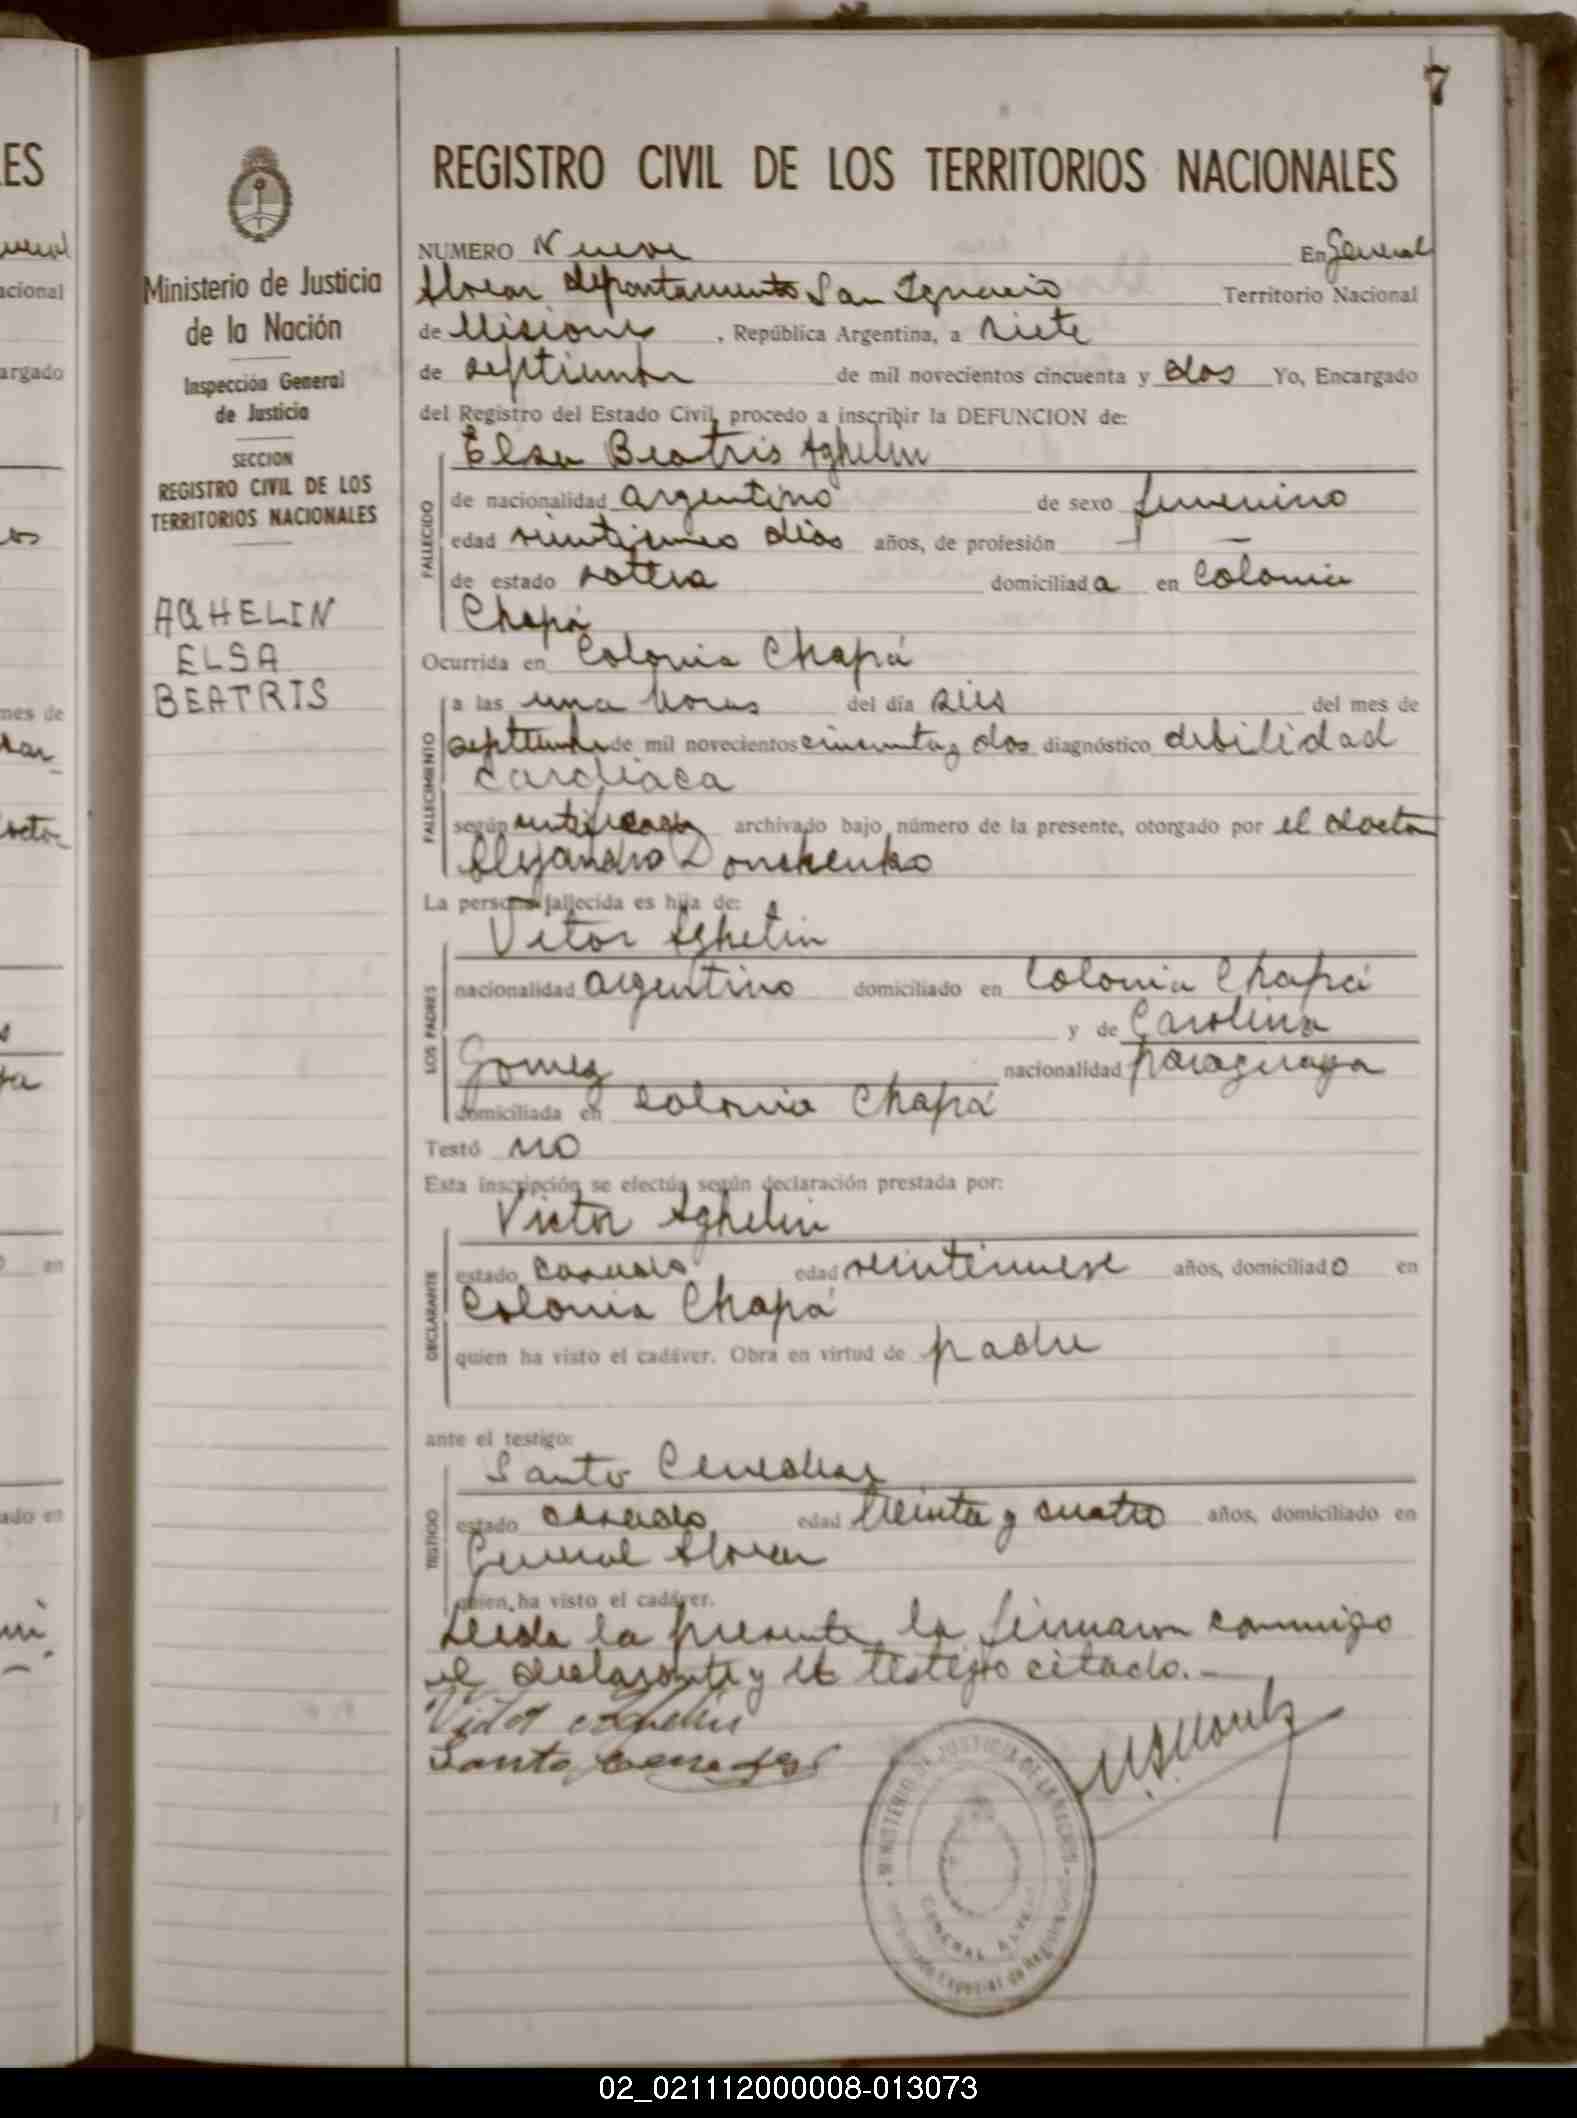 7
REGISTRO CIVIL DE LOS TERRITORIOS NACIONALES
Ministerio de Justicia
de la Nación
Inspección General
de Justicia
SECCION
REGISTRO CIVIL DE LOS
TERRITORIOS NACIONALES
AGHELIN
ELSA
BEATRIS
NUMERO Nueve En General
Alvear departamento San Ignacio Territorio Nacional
de Misiones, República Argentina, a siete
de septiembre de mil novecientos cincuenta y dos Yo, Encargado
del Registro del Estado Civil, procedo a inscribir la DEFUNCION de:
Elsa Beatris Aghelin
FALLECIDO
de nacionalidad argentino de sexo femenino
edad dias años, de profesión —
de estado soltera domiciliada en Colonia
Chapá
Ocurrida en Colonia Chapá
FALLECIMIENTO
a las una horas del día seis del mes de
septiembre de mil novecientos cincuenta y dos diagnóstico debilidad
cardiaca
según certificado archivado bajo número de la presente, otorgado por el doctor
Alejandro Donchenko
La persona fallecida es hija de:
Vitor Aghelin
LOS PADRES
nacionalidad argentino domiciliado en Colonia Chapá
y de Carolina
Gomez nacionalidad paraguaya
domiciliada en Colonia Chapá
Testó no
Esta inscripción se efectúa según declaración prestada por:
Victor Aghelin
DECLARANTE
estado casado edad veintinueve años, domiciliado en
Colonia Chapá
quien ha visto el cadáver. Obra en virtud de padre
ante el testigo:
Santo
TESTIGO
estado casado edad treinta y cuatro años, domiciliado en
General Alvear
quien, ha visto el cadáver.
Leida la presente, la firmaron conmigo
el declarante y el testigo citado.-
Vidor Aghelin
Santo
MINISTERIO DE JUSTICIA DE LA NACION
GENERAL ALVEAR
02_021112000008-013073